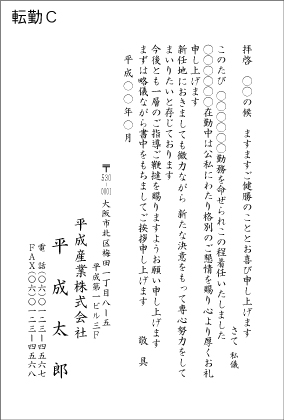 転勤C
拝啓　○○の候　ますますご健勝のこととお喜び申し上げます
さて　私儀
このたび　○○○○○○勤務を命ぜられこの程着任いたしました
○○○○○○在勤中は公私にわたり格別のご懇情を賜り心より厚くお礼
申し上げます
新任地におきましても微力ながら　新たな決意をもって専心努力をして
まいりたいと存じております
今後とも一層のご指導ご鞭撻を賜りますようお願い申し上げます
まずは略儀ながら書中をもちましてご挨拶申し上げます
敬　具
平成○○年○月
〒530-0001　大阪市北区梅田一丁目八－五
平成第一ビル三F
平成産業株式会社
平成太郎
電話(〇六)〇一二三－四五六七
FAX(〇六)〇一二三－四五六八